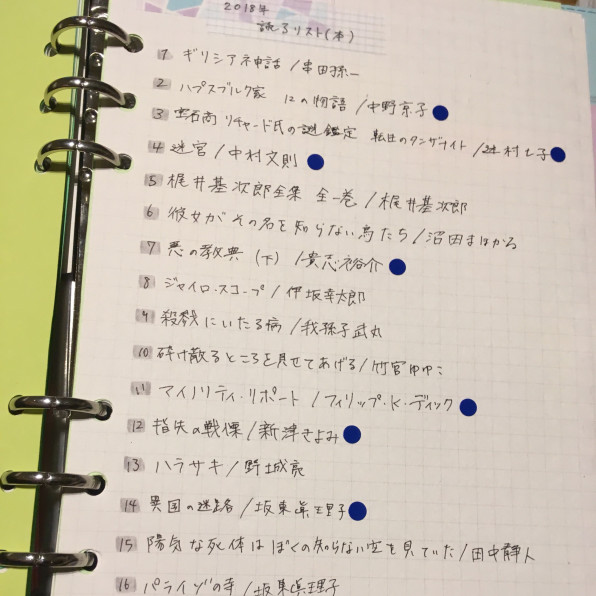 2018年
読るリスト(本)
1 ギリシアネ申話 / 串田孫一
2 ハプスブルク家 12の物語 / 中野京子
3 宝石商リチャード氏の謎鑑定 転生のタンザナイト / 辻村七子
4 迷宮 / 中村文則
5 梶井基次郎全集 全一巻 / 梶井基次郎
6 彼女がその名を知らない鳥たち / 沼田まほかる
7 悪の教典 (下) / 貴志祐介
8 ジャイロ・スコープ / 伊坂幸太郎
9 殺戮にいたる病 / 我孫子武丸
10 砕け散るところを見せてあげる / 竹宮ゆゆこ
11 マイノリティ・リポート / フィリップ・K・ディック
12 指失の戦慄 / 新津きよみ
13 ハラサキ / 野城亮
14 異国の迷路 / 坂東眞理子
15 陽気な死体はぼくの知らない空を見ていた / 田中静人
16 パライゾの寺 / 坂東眞理子